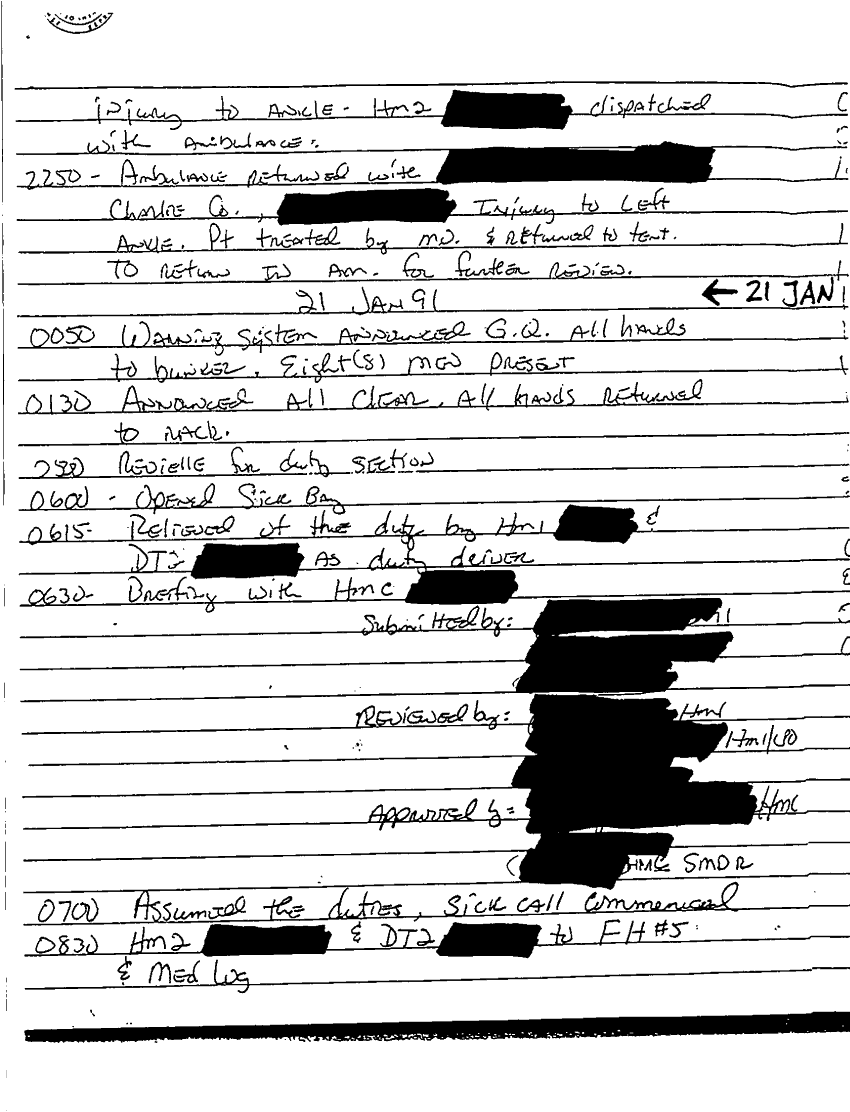 injury to ANKLE - Hm2 dispatched
with Ambulance.
2250 - Ambulance Returned with
Charlie Co., Injury to Left
Ankle. Pt treated by MD. & Returned to tent.
TO Return IN Am. for further Review.
21 JAN 91
← 21 JAN
0050 Warning System Announced G.Q. All hands
to bunker. Eight (8) MEN PRESENT
0130 ANNOUNCED All CLEAR. All hands Returned
to RACK.
Revielle for duty SECTION
0600 - Opened Sick Bay
0615- Relieved of the duty by Hm1 &
AS duty driver
0630- Briefing with HmC
Submitted by:
Reviewed by: Hm1
Hm1/
Approved by: HmC
( HMC SMDR
0700 Assumed the duties, Sick call Commenced
0830 Hm2 & DT2 to FH #5
& Med Log